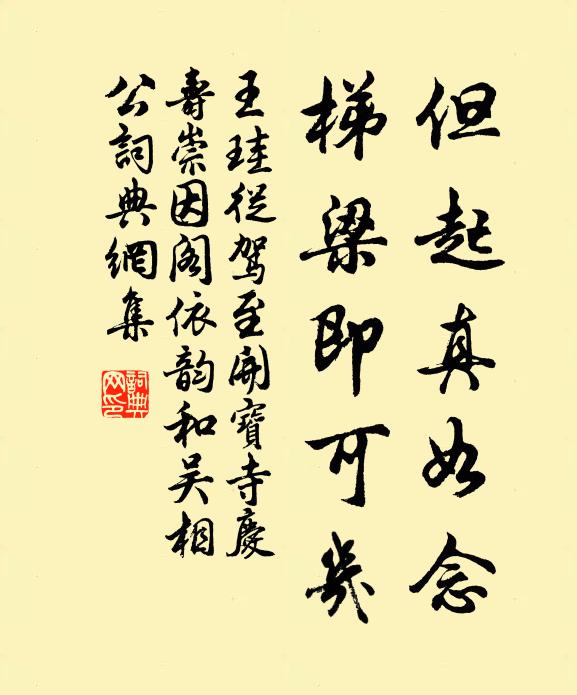 但起真如念
梯梁即可幾
王珪從駕至開寶寺慶
壽崇因閣依韵和吴相
公詞典網集
詞典
网印